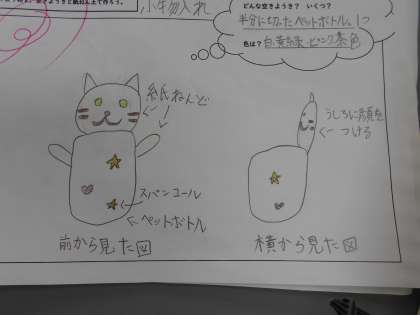 小物入れ
どんな空きようき？　いくつ？
半分に切ったペットボトル、1つ
色は？ 白、黄緑、ピンク、茶色
紙ねんど
スパンコール
ペットボトル
前から見た図
うしろに顔を
つける
横から見た図